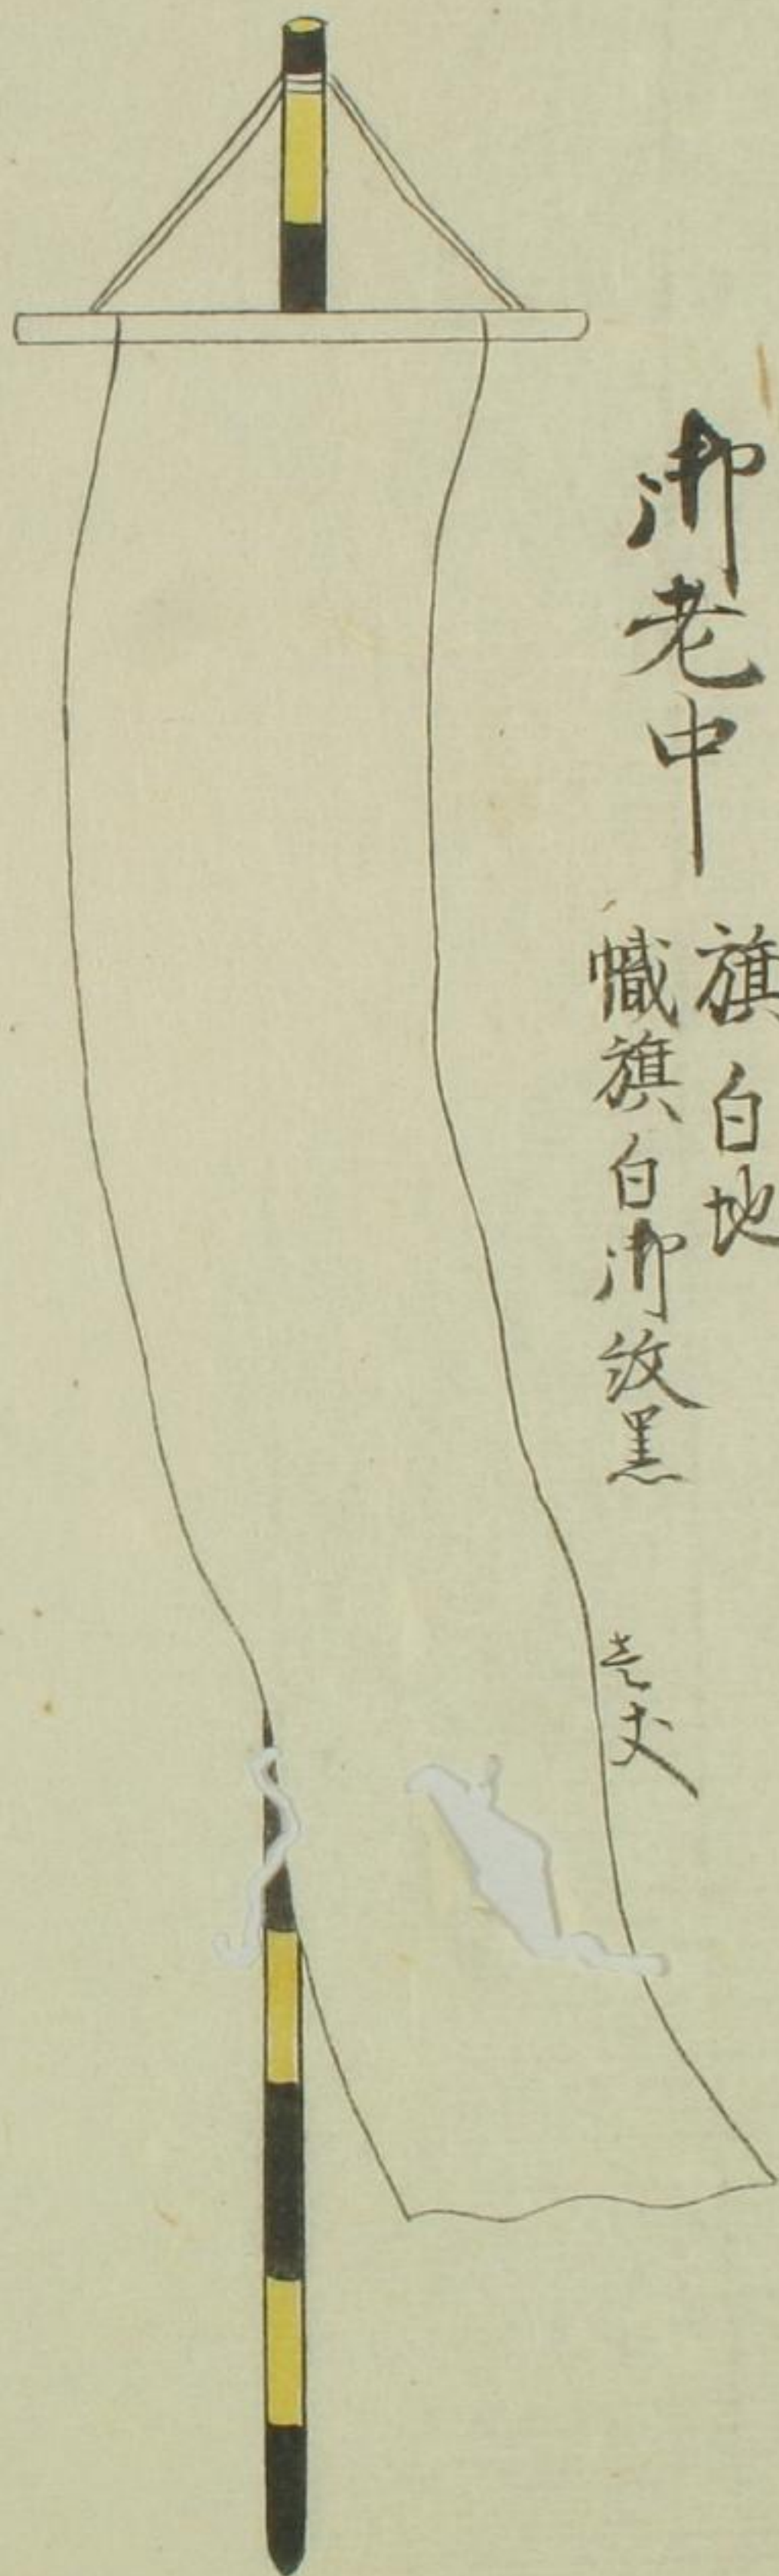 御老中
旗白地
幟旗白御紋黒
壱丈